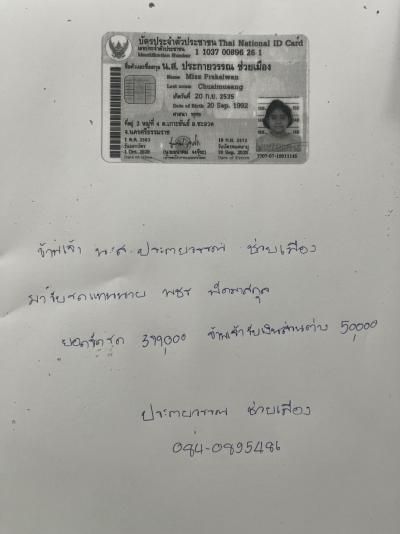 บัตรประจำตัวประชาชน Thai National ID Card
เลขประจำตัวประชาชน
Identification Number 1 1037 00896 26 1
ชื่อตัวและชื่อสกุล น.ส. ประกายวรรณ ช่วยเมือง
Name Miss Prakaiwan
Last name Chuaimueang
เกิดวันที่ 20 ก.ย. 2535
Date of Birth 20 Sep. 1992
ศาสนา พุทธ
ที่อยู่ 3 หมู่ที่ 4 ต.เกาะขันธ์ อ.ชะอวด
จ.นครศรีธรรมราช
1 ต.ค. 2563
วันออกบัตร
1 Oct. 2020
19 ก.ย. 2572
วันบัตรหมดอายุ
19 Sep. 2029
Date of Expiry
ข้าพเจ้า น.ส. ประกายวรรณ ช่วยเมือง
มารับรถแทนนาย พชร
ยอดจัดชุด 399,000 ข้าพเจ้ารับเงินส่วนต่าง 50,000
ประกายวรรณ ช่วยเมือง
084-0895486